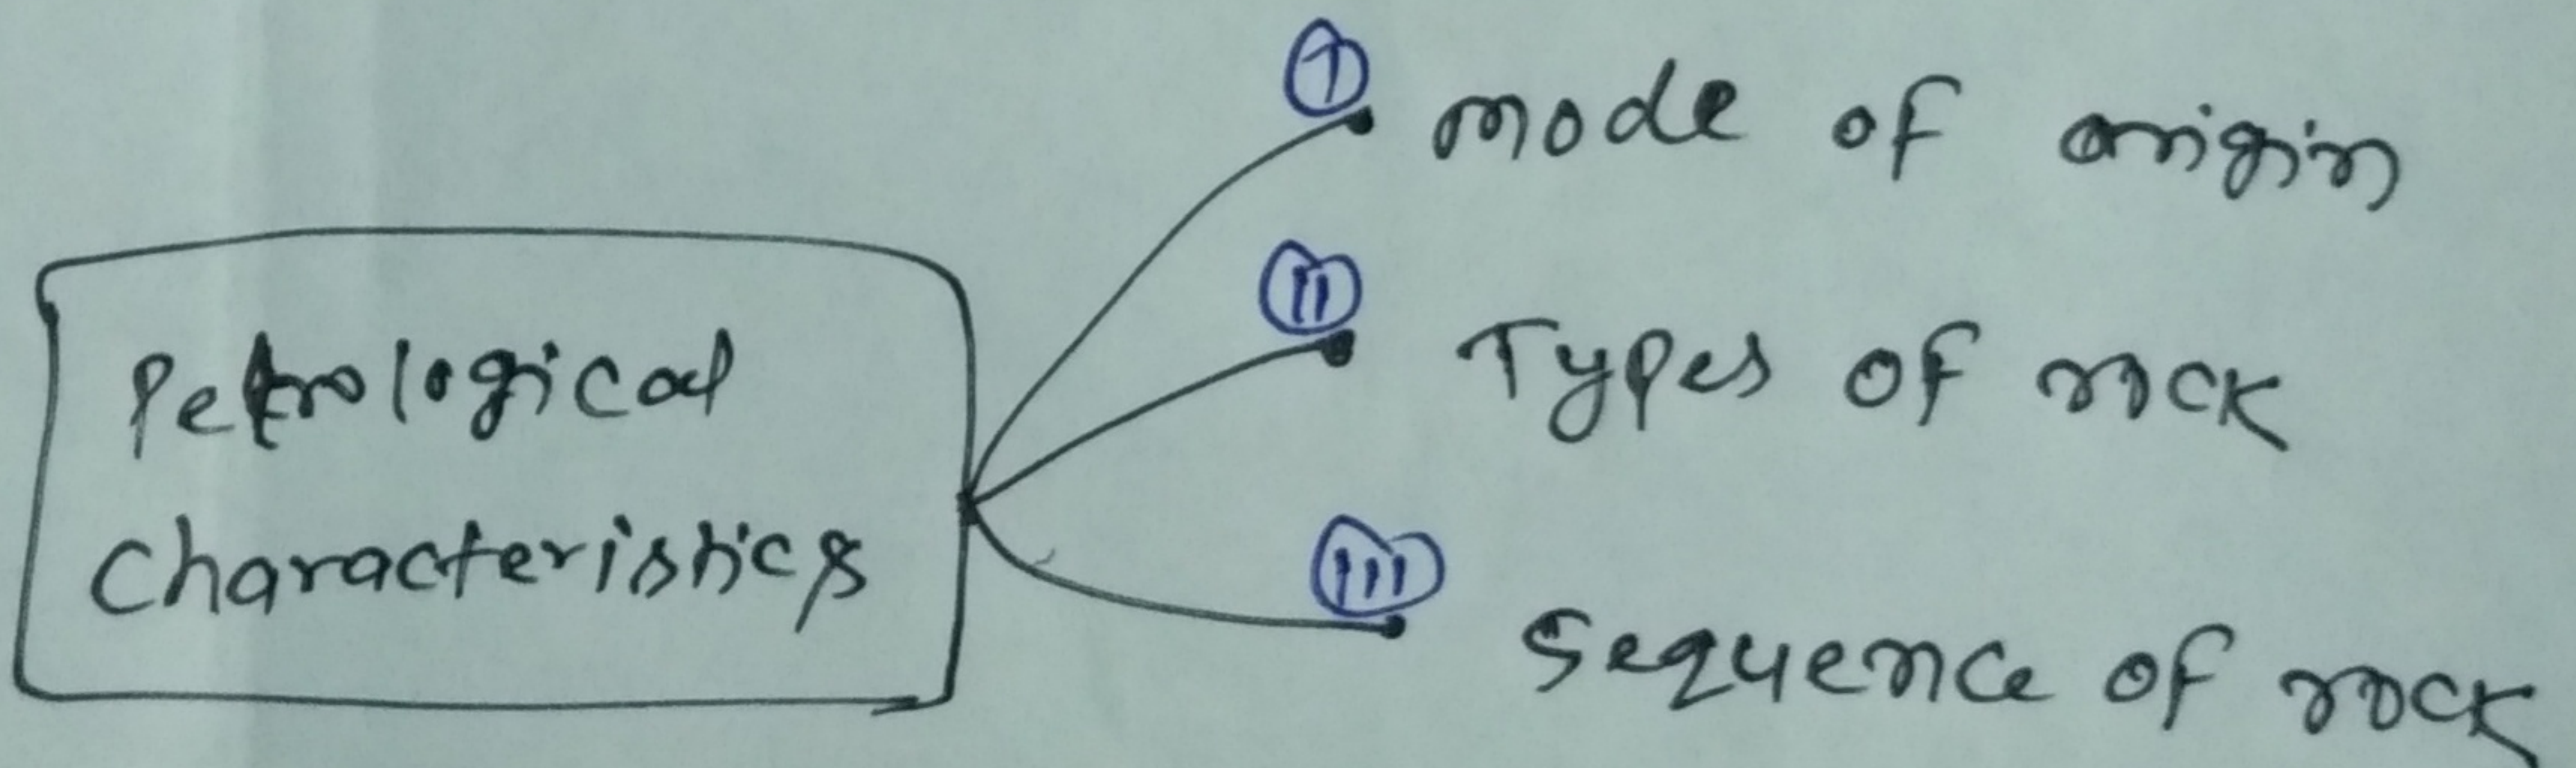 Petrological
Characteristics
I mode of origin
II Types of rock
III Sequence of rock